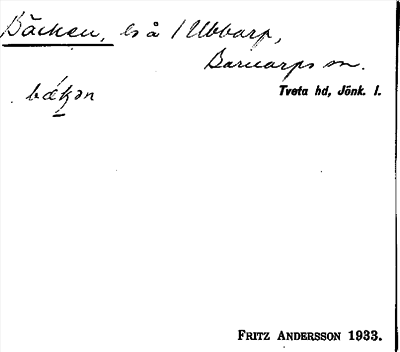 Bäcken, ls å / Ubbarp,
Barnarps sn.
Tveta hd, Jönk. l.
bækən
FRITZ ANDERSSON 1933.